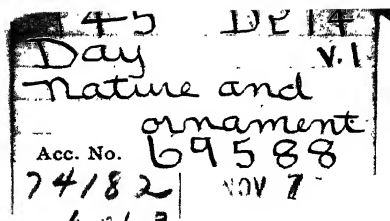 745 D214
Day v.1
nature and
ornament
Acc. No. 69588
74182 NOV 7